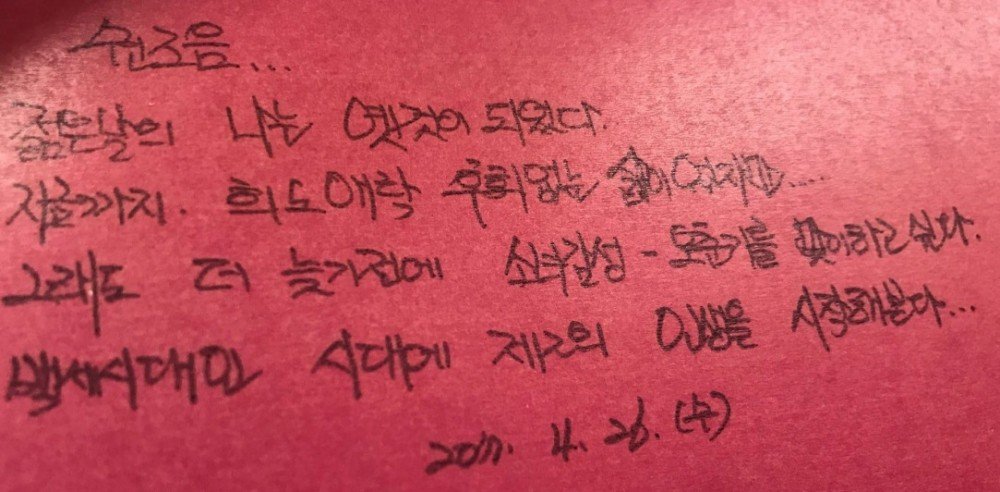 쉰즈음...
젊은날의 나는 옛것이 되었다.
지금까지. 희노애락 후회없는 삶이였지만....
그래도 더 늙기전에 소녀감성 - 오춘기를 맞이하고 싶다.
백세시대인 시대에 제2의 인생을 시작해본다...
2017. 4. 26. (수)